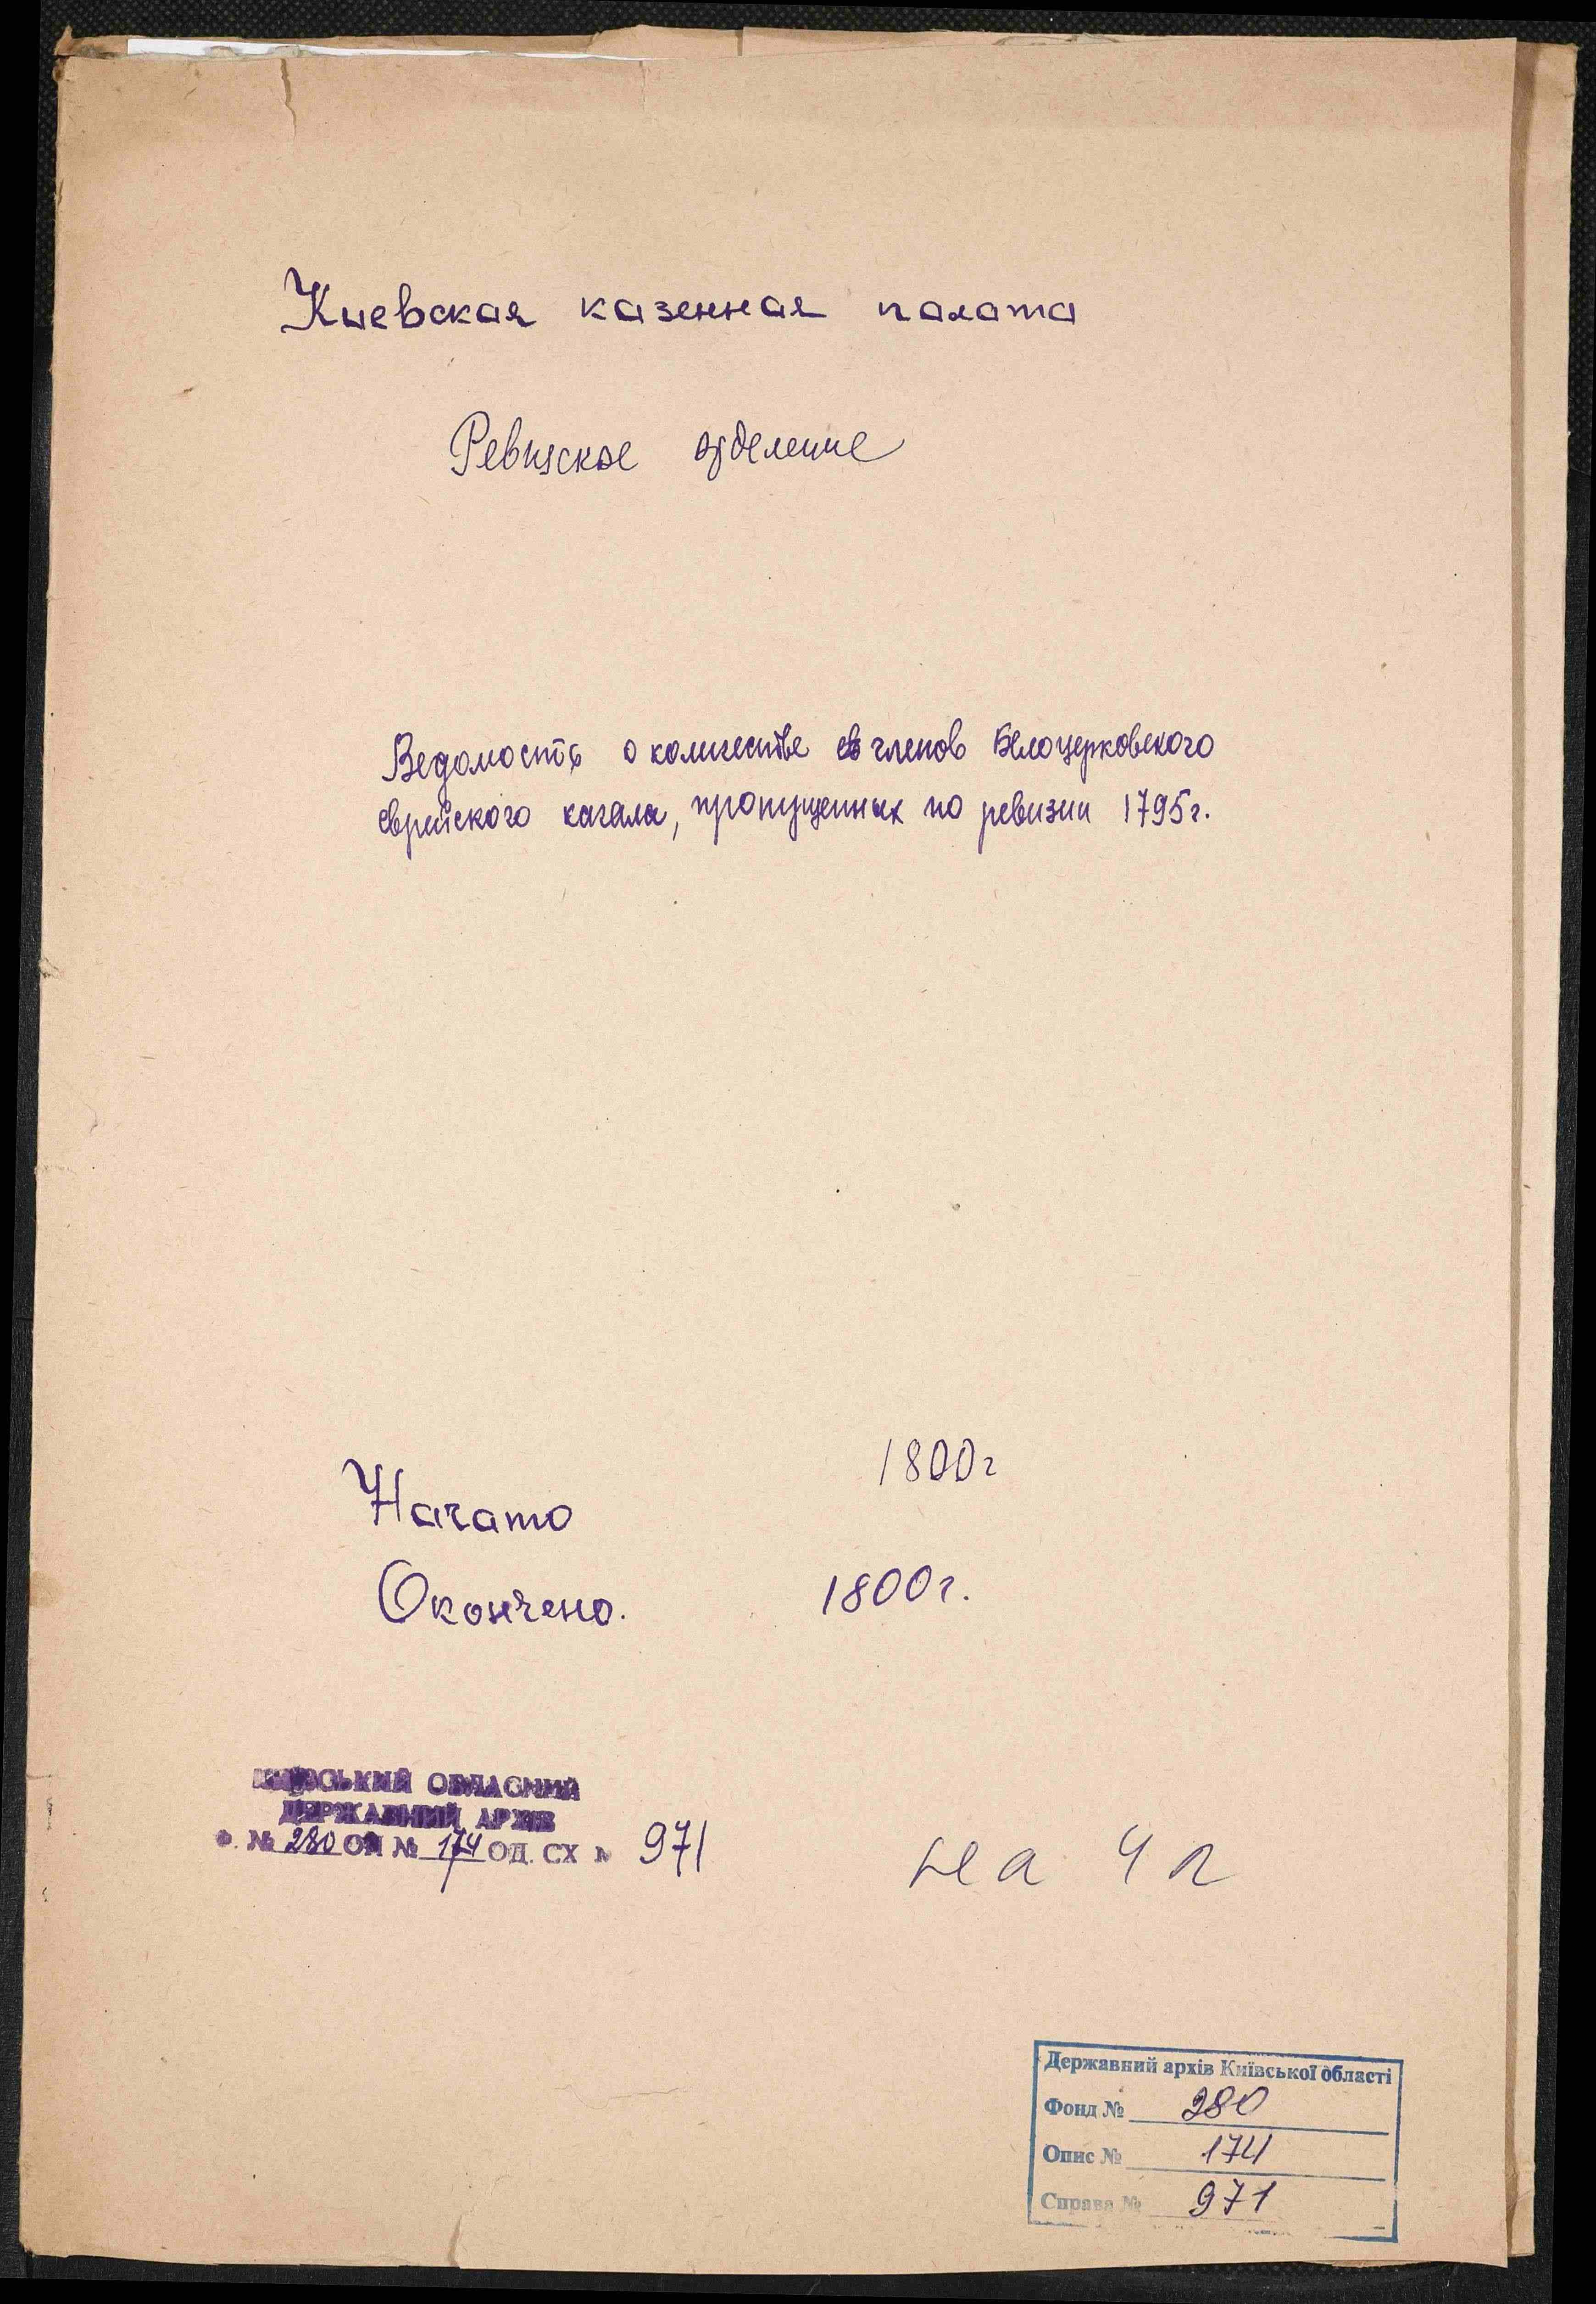 Киевская казенная палата
Ревизское отделение
Ведомость о количестве членов Белоцерковского
еврейского кагала, пропущенных по ревизии 1795г.
1800г
Начато
Окончено. 1800г.
КИЇВСЬКИЙ ОБЛАСНИЙ
ДЕРЖАВНИЙ АРХІВ
Ф. № 280 ОП № 174 ОД. СХ № 971
на 4 л
Державний архів Київської області
Фонд № 280
Опис № 174
Справа № 971